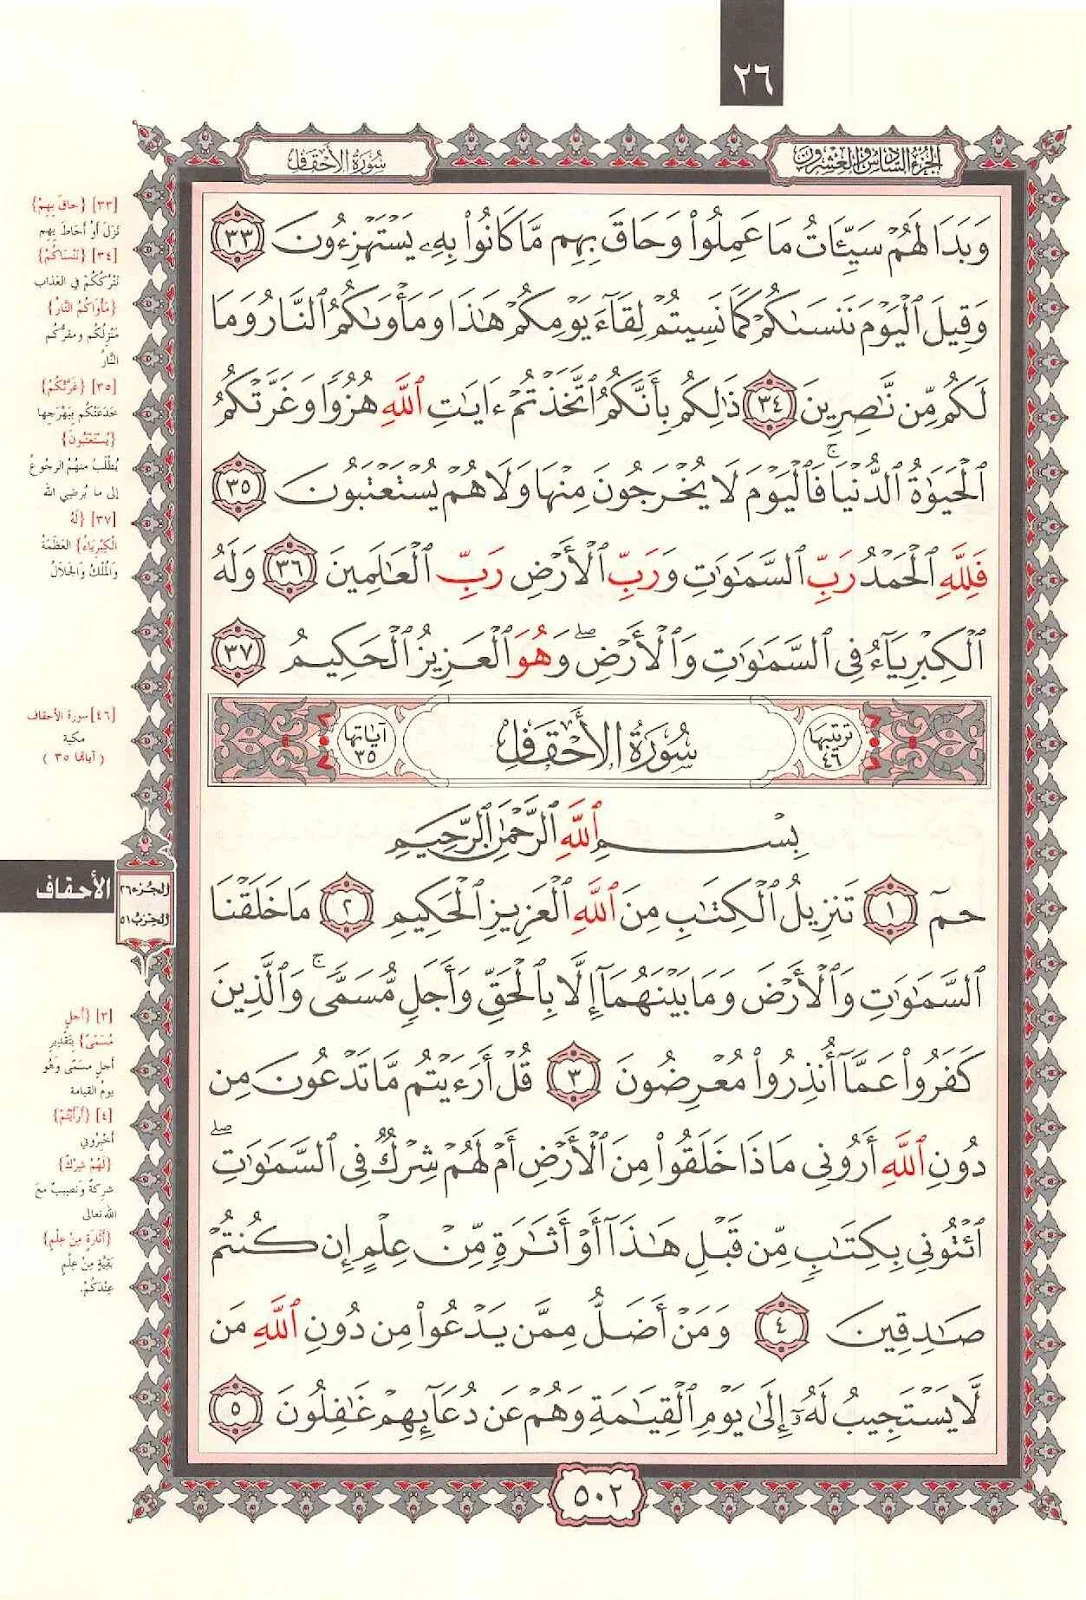 ٢٦
الجزء السادس والعشرون
سُورَةُ الأَحْقَاف
وَبَدَا لَهُمْ سَيِّـَٔاتُ مَا عَمِلُوا۟ وَحَاقَ بِهِم مَّا كَانُوا۟ بِهِۦ يَسْتَهْزِءُونَ ٣٣
وَقِيلَ ٱلْيَوْمَ نَنسَىٰكُمْ كَمَا نَسِيتُمْ لِقَآءَ يَوْمِكُمْ هَٰذَا وَمَأْوَىٰكُمُ ٱلنَّارُ وَمَا
لَكُم مِّن نَّٰصِرِينَ ٣٤ ذَٰلِكُم بِأَنَّكُمُ ٱتَّخَذْتُمْ ءَايَٰتِ ٱللَّهِ هُزُوًا وَغَرَّتْكُمُ
ٱلْحَيَوٰةُ ٱلدُّنْيَا ۚ فَٱلْيَوْمَ لَا يُخْرَجُونَ مِنْهَا وَلَا هُمْ يُسْتَعْتَبُونَ ٣٥
فَلِلَّهِ ٱلْحَمْدُ رَبِّ ٱلسَّمَٰوَٰتِ وَرَبِّ ٱلْأَرْضِ رَبِّ ٱلْعَٰلَمِينَ ٣٦ وَلَهُ
ٱلْكِبْرِيَآءُ فِى ٱلسَّمَٰوَٰتِ وَٱلْأَرْضِ ۖ وَهُوَ ٱلْعَزِيزُ ٱلْحَكِيمُ ٣٧
ترتيبها ٤٦ سُورَةُ الأَحْقَاف آياتها ٣٥
بِسْمِ ٱللَّهِ ٱلرَّحْمَٰنِ ٱلرَّحِيمِ
حمٓ ١ تَنزِيلُ ٱلْكِتَٰبِ مِنَ ٱللَّهِ ٱلْعَزِيزِ ٱلْحَكِيمِ ٢ مَا خَلَقْنَا
ٱلسَّمَٰوَٰتِ وَٱلْأَرْضَ وَمَا بَيْنَهُمَآ إِلَّا بِٱلْحَقِّ وَأَجَلٍ مُّسَمًّى ۚ وَٱلَّذِينَ
كَفَرُوا۟ عَمَّآ أُنذِرُوا۟ مُعْرِضُونَ ٣ قُلْ أَرَءَيْتُم مَّا تَدْعُونَ مِن
دُونِ ٱللَّهِ أَرُونِى مَاذَا خَلَقُوا۟ مِنَ ٱلْأَرْضِ أَمْ لَهُمْ شِرْكٌ فِى ٱلسَّمَٰوَٰتِ ۖ
ٱئْتُونِى بِكِتَٰبٍ مِّن قَبْلِ هَٰذَآ أَوْ أَثَٰرَةٍ مِّنْ عِلْمٍ إِن كُنتُمْ
صَٰدِقِينَ ٤ وَمَنْ أَضَلُّ مِمَّن يَدْعُوا۟ مِن دُونِ ٱللَّهِ مَن
لَّا يَسْتَجِيبُ لَهُۥٓ إِلَىٰ يَوْمِ ٱلْقِيَٰمَةِ وَهُمْ عَن دُعَآئِهِمْ غَٰفِلُونَ ٥
٥٠٢
[٣٣] {حاقَ بِهِمْ}
نَزَلَ أَوْ أَحَاطَ بِهِم
[٣٤] {نَنْسَاكُمْ}
نَتْرُكُكُمْ فِي العَذاب
{مَأْوَاكُمُ النَّارُ}
مَنْزِلُكُم ومقرُّكُم
النَّارُ
[٣٥] {غَرَّتْكُمُ}
خَدَعَتْكُم بِبَهْرَجِها
{يُسْتَعْتَبُونَ}
يُطْلَبُ منهُمُ الرجُوعُ
إلى ما يُرضِي الله
[٣٧] {لَهُ
الْكِبْرِيَاءُ} العَظَمَةُ
وَالْمُلْكُ وَالجَلَالُ
[٤٦] سورة الأحقاف
مكية
( آياتها ٣٥ )
الأحقاف
الجزء ٢٦
الحزب ٥١
[٣] {أَجَلٍ
مُسَمّىً} بِتَقْدِيرِ
أَجَلٍ مسَمّى وهُو
يومُ القيامة
[٤] {أَرَأَيْتُمْ}
أَخْبِرُونِي
{لَهُمْ شِرْكٌ}
شرِكةٌ وَنصيبٌ معَ
الله تعالى
{أَثَارَةٍ مِنْ عِلْمٍ}
بَقِيَّةٍ مِنْ عِلْمٍ
عِنْدَكُمْ.